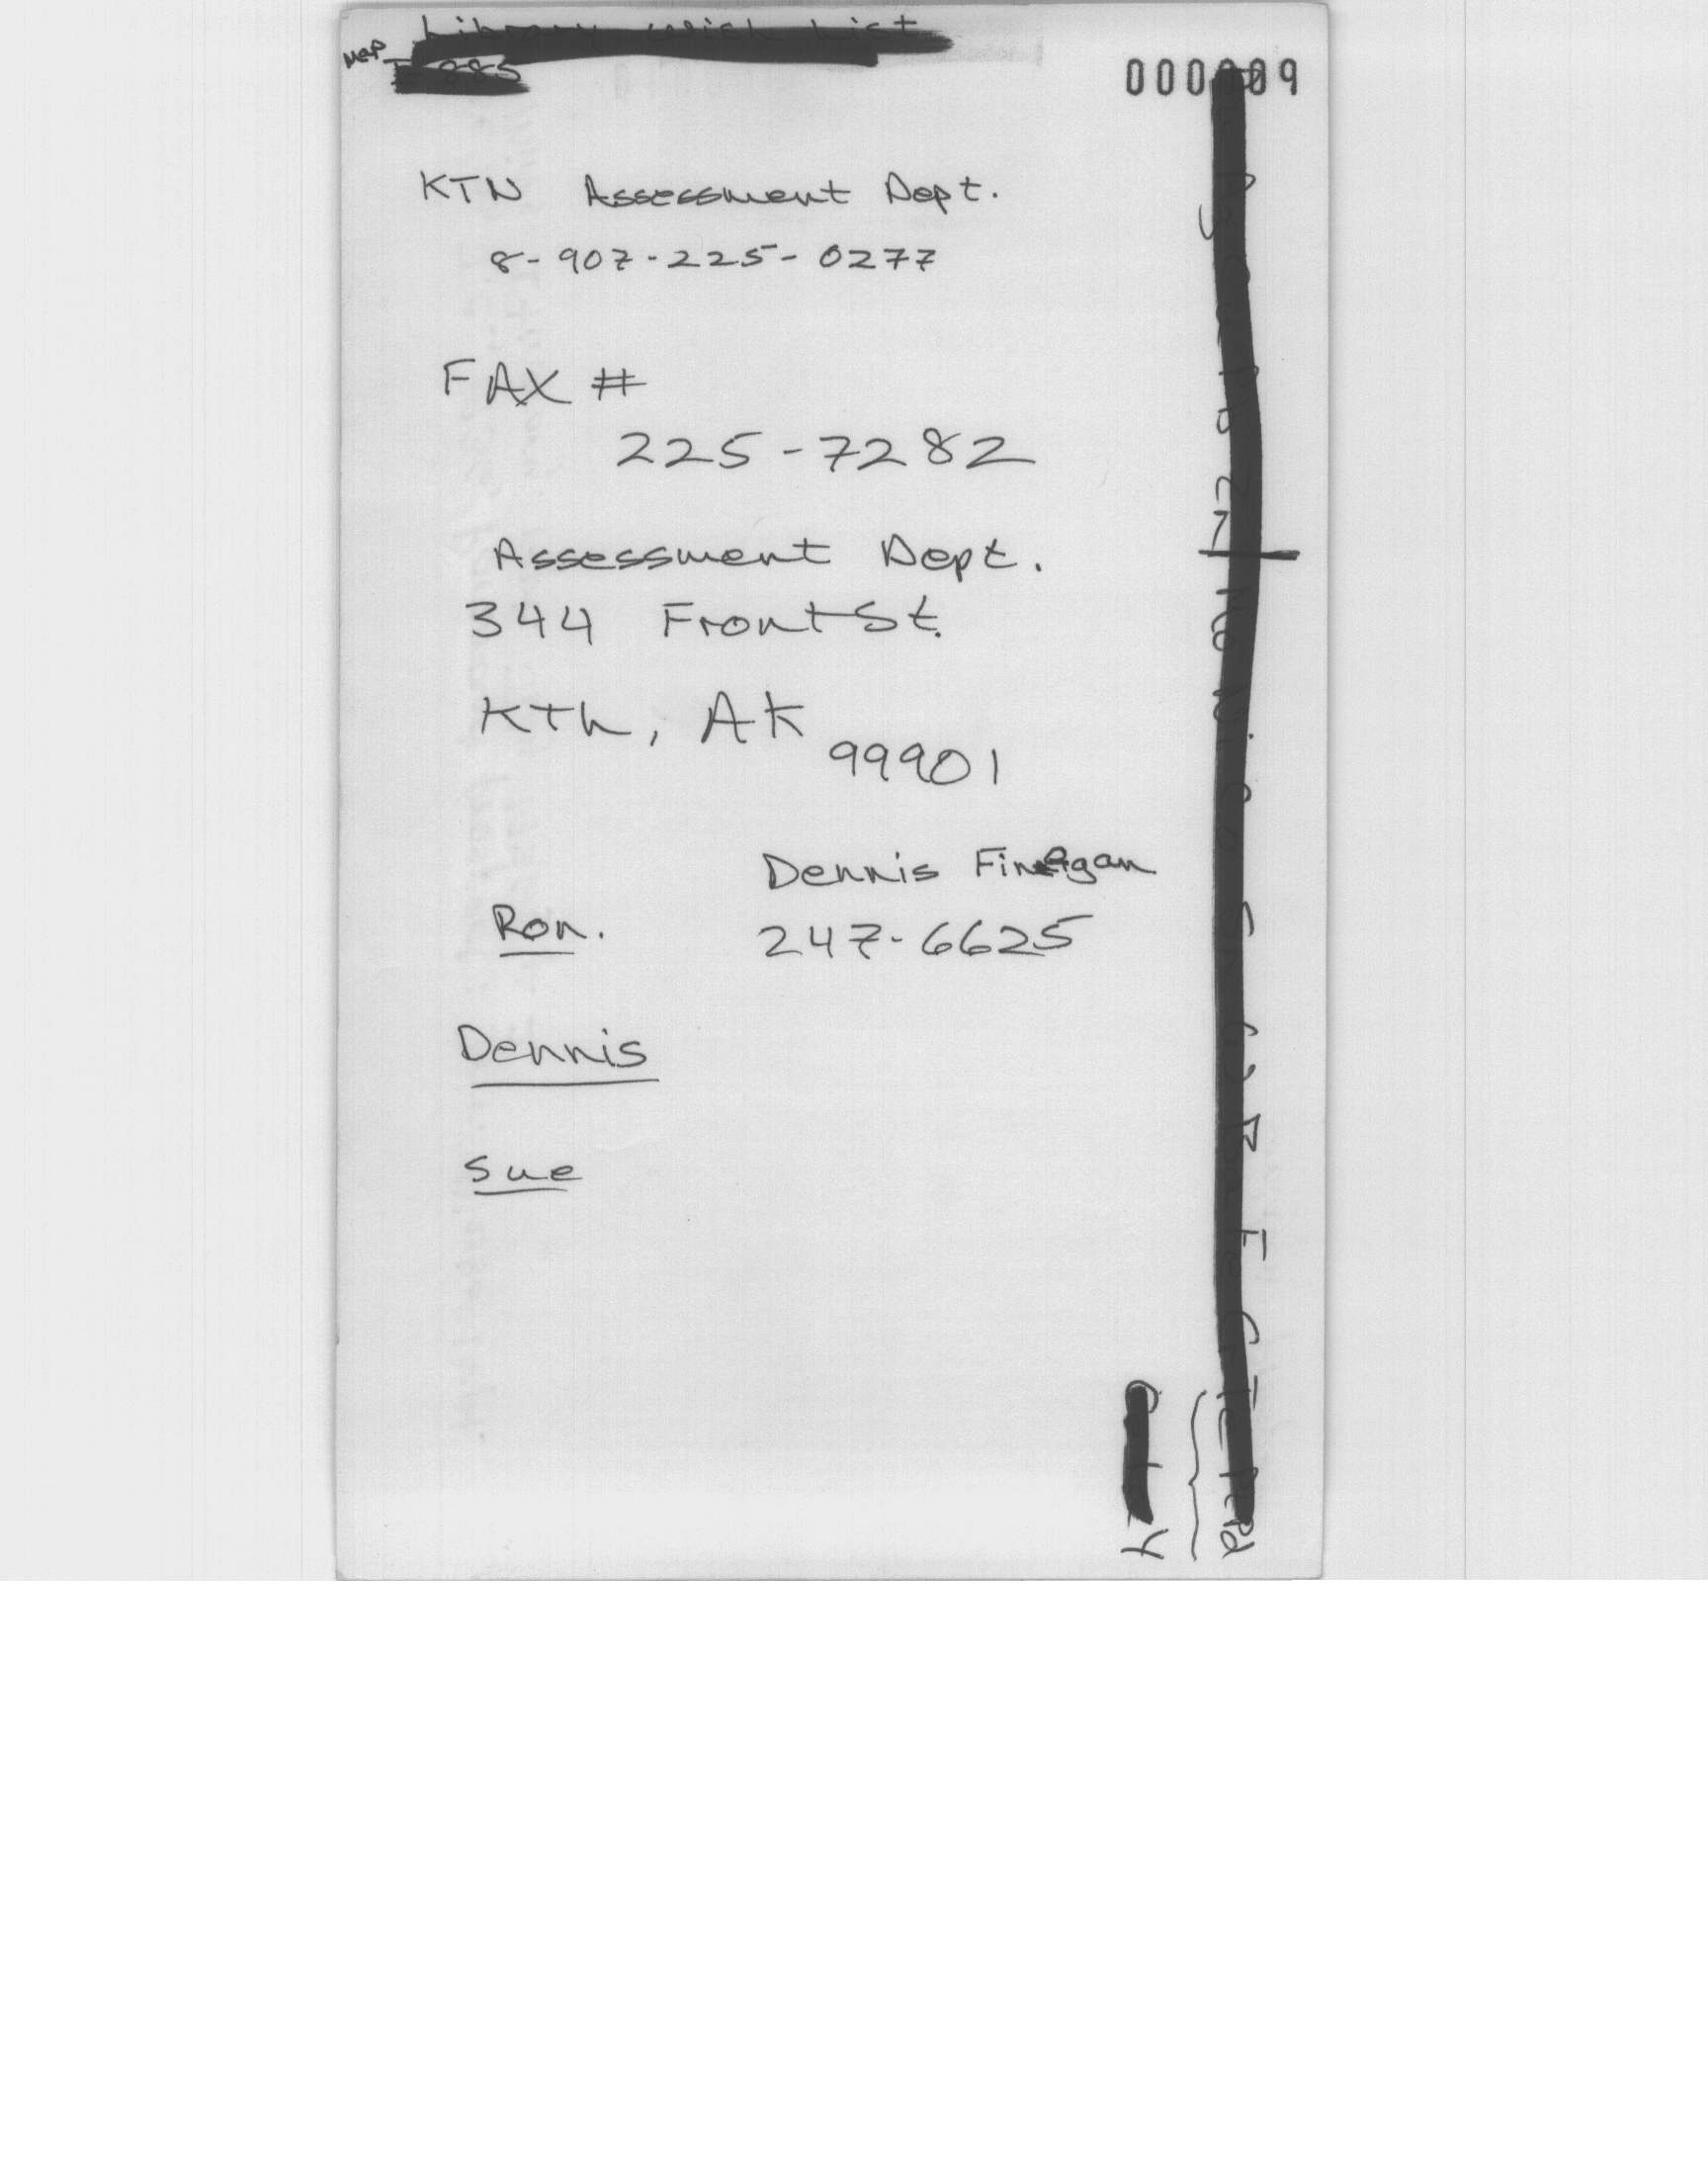 Library Wish List
Map
000009
KTN Assessment Dept.
8-907-225-0277
FAX #
225-7282
Assessment Dept.
344 Front St.
KTN, AK
99901
Dennis Finegan
Ron.
247-6625
Dennis
Sue